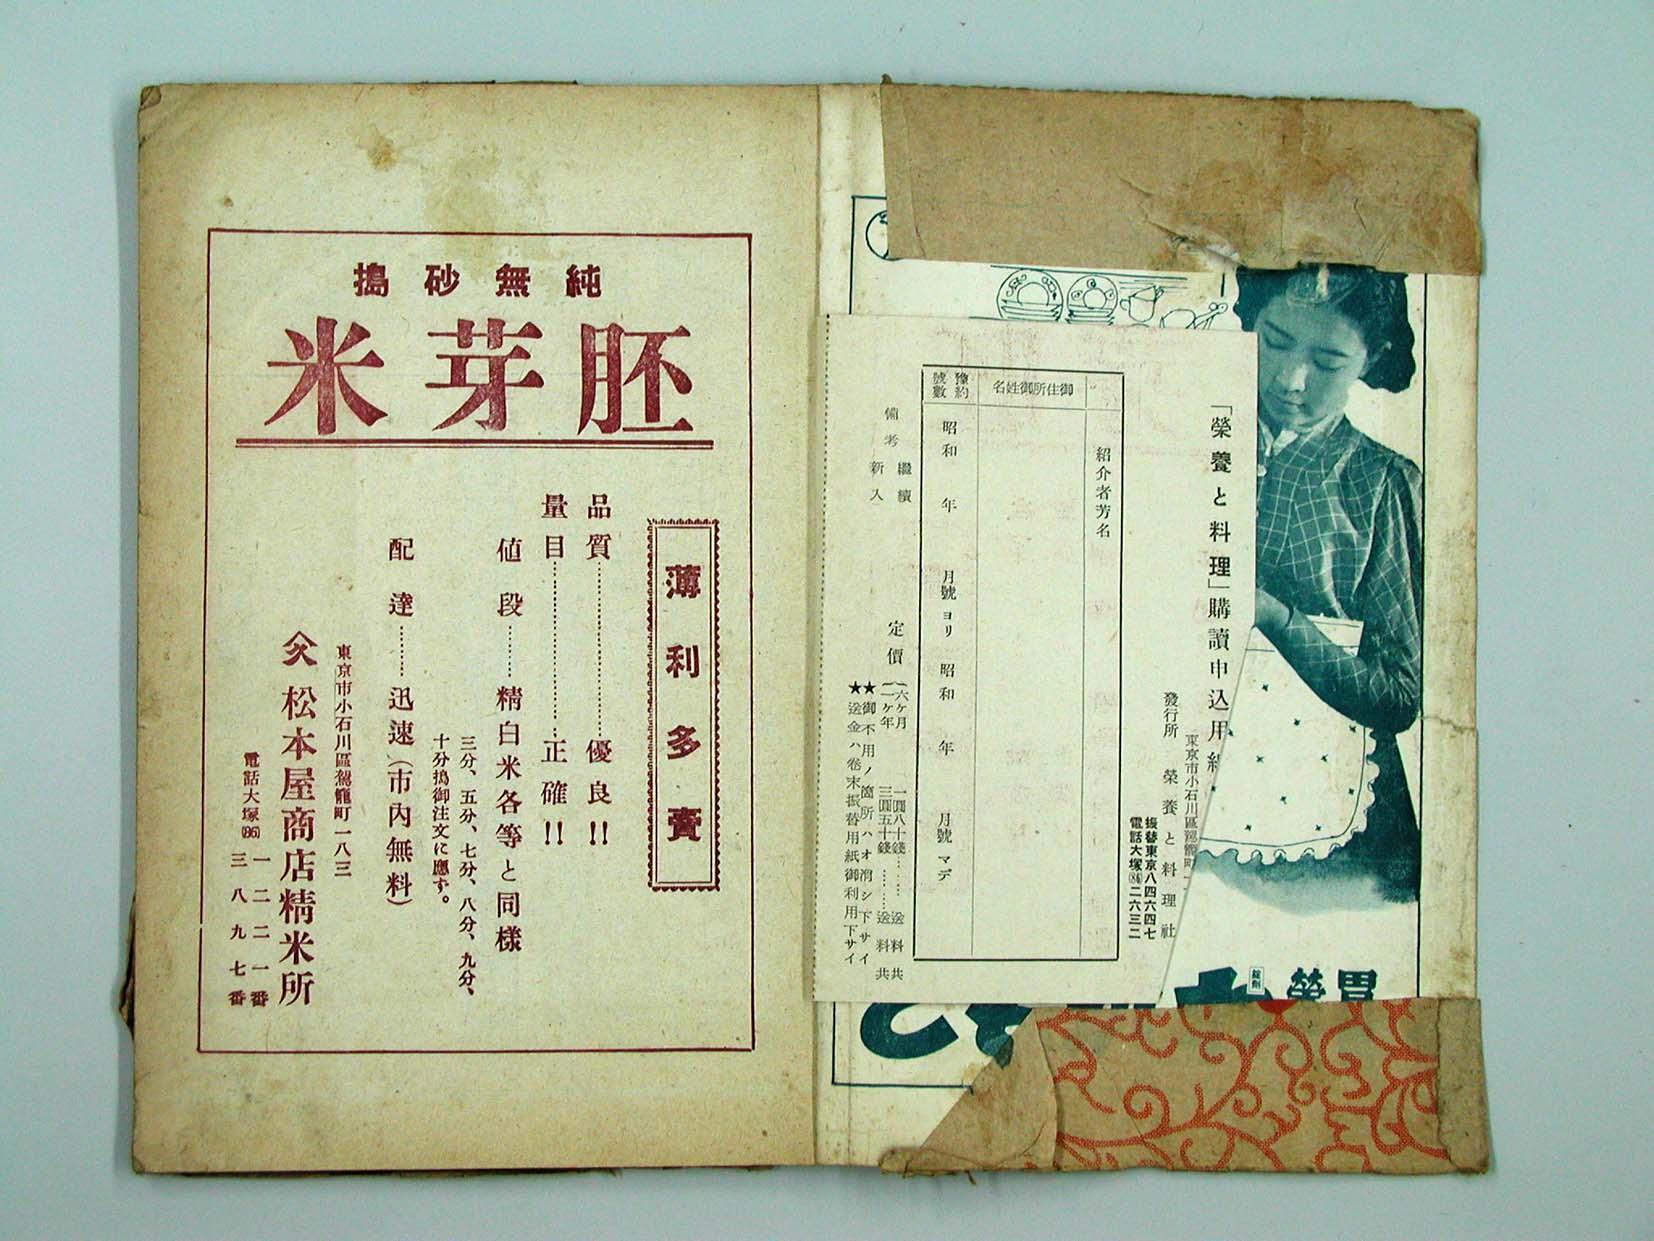 「榮養と料理」購讀申込用
東京市小石川區駕籠町一
發行所 榮養と料理社
振替東京八四六四七
電話大塚(86)二六三二
紹介者芳名
御住所御姓名
豫約號數
昭和 年 月號ヨリ昭和 年 月號マデ
備考 繼續
新入
定價
(六ケ月 一圓八十錢……送料共
(一ケ年 三圓五十錢……送料共
★御不用ノ箇所ハオ消シ下サイ
★送金ハ卷末振替用紙御利用下サイ
胃
榮
錠劑
純無砂搗
胚芽米
薄利多賣
品質……優良!!
量目……正確!!
値段……精白米各等と同樣
三分、五分、七分、八分、九分、
十分搗御注文に應ず。
配達……迅速(市內無料)
東京市小石川區駕籠町一八三
久 松本屋商店精米所
電話大塚(86)一二二一番
三八九七番